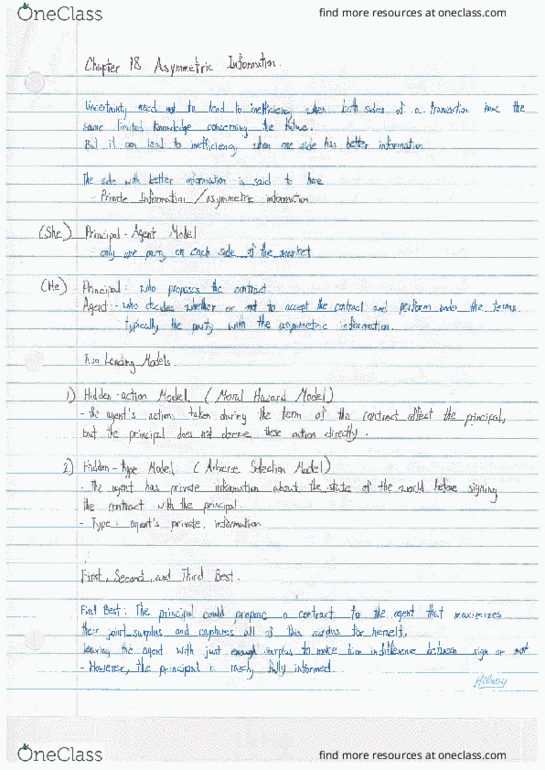 OneClass
find more resources at oneclass.com
Chapter 18 Asymmetric Information.
Uncertainty need not to lead to inefficiency when both sides of a transaction have the
same limited knowledge concerning the future.
But it can lead to inefficiency when one side has better information
The side with better information is said to have
- Private Information / asymmetric information
(She) Principal-Agent Model
only one party on each side of the market
(He) Principal: who proposes the contract
Agent:- who decides whether or not to accept the contract and perform under the terms.
typically the party with the asymmetric information.
Two Leading Models.
1) Hidden-action Model. (Moral Hazard Model)
- the agent's actions taken during the term of the contract affect the principal,
but the principal does not observe these action directly.
2) Hidden-Type Model (Adverse Selection Model)
- The agent has private information about the state of the world before signing
the contract with the principal.
- Type: agent's private information
First, Second, and Third Best.
First Best: The principal could propose a contract to the agent that maximizes
their joint surplus and captures all of this surplus for herself,
leaving the agent with just enough surplus to make him indifference between sign or not
- However, the principal is rarely fully informed.
OneClass
find more resources at oneclass.com